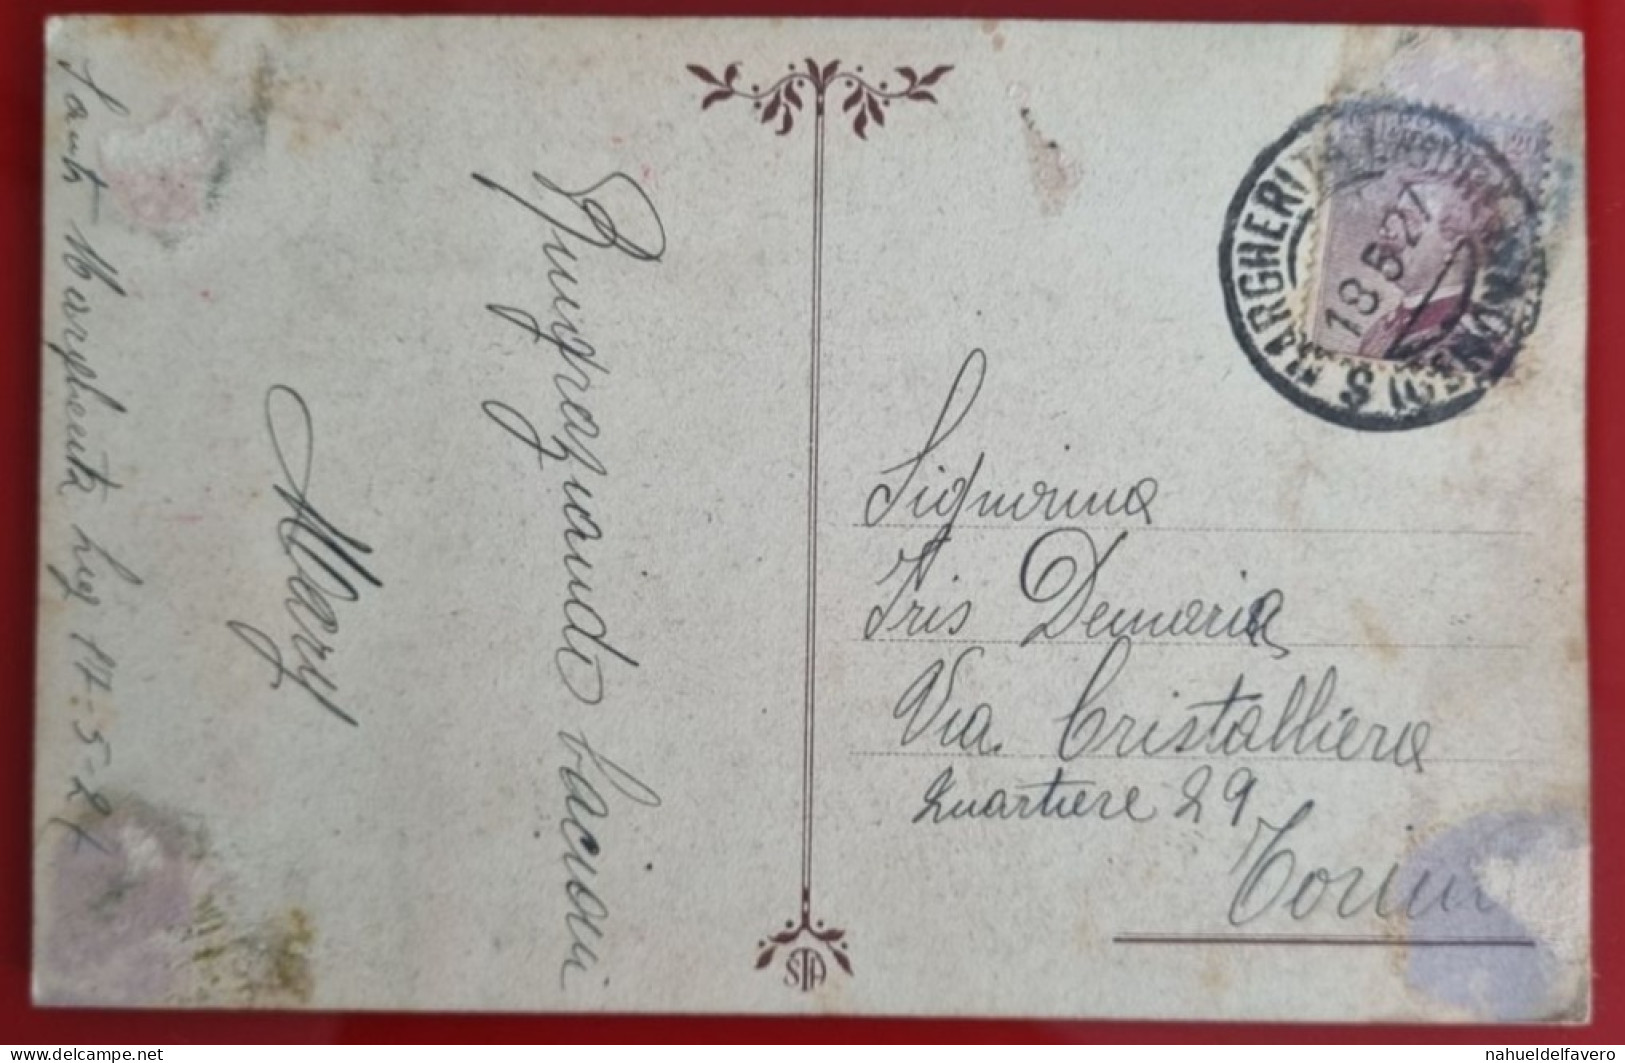 Sant Margherita Lig 17-5-27
Ringraziando bacioni
Mery
S. MARGHERITA LIGURE
18.5.27
20
Signorina
Iris Demaria
Via Cristalliera
Quartiere 29
Torin
STA
delcampe.net
nahueldelfavero